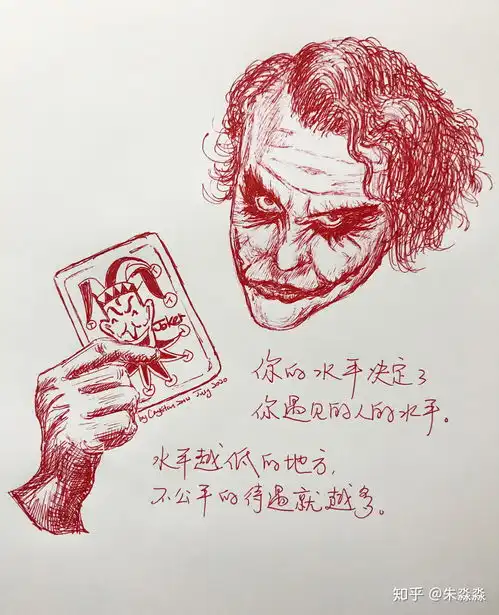 Joker
by Crystal Zhu July 2020
你的水平决定了
你遇见的人的水平。
水平越低的地方，
不公平的待遇就越多。
知乎 @朱淼淼